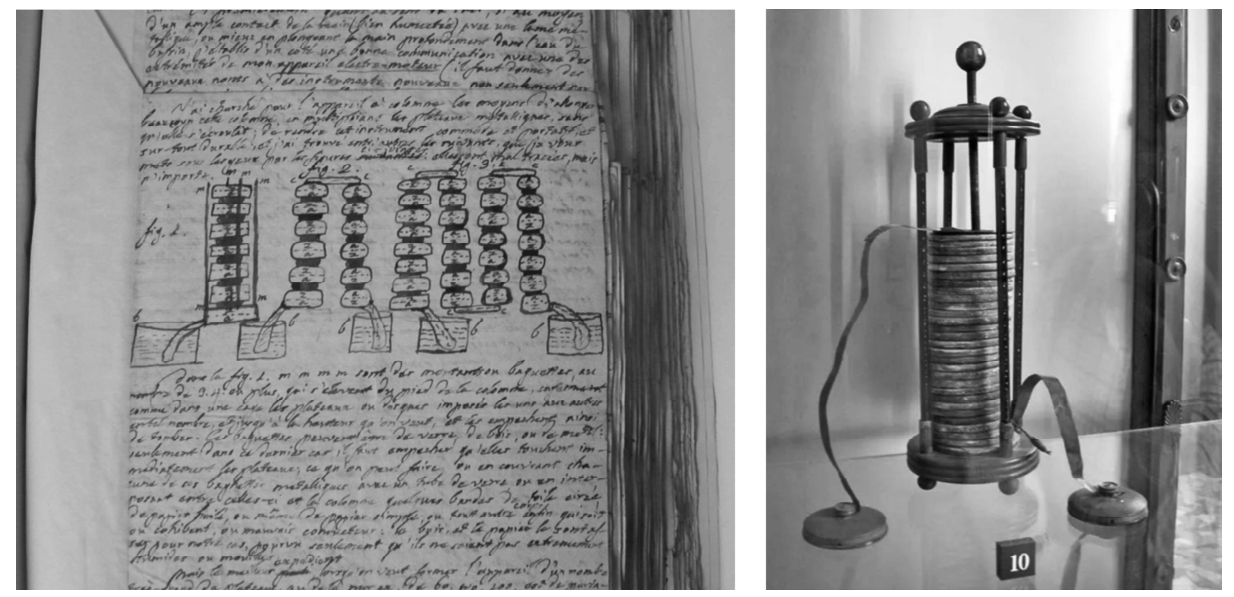 d'un ample contact de la main (bien humectée) avec une lame mé-
tallique, ou mieux en plongeant la main profondement dans l'eau du
bassin, j'établis d'un coté une bonne communication avec une des
extremités de mon appareil electro-moteur (il faut donner des
nouveaux noms a des instruments nouveaux non seulement
J'ai cherché pour l'appareil a colonne les moyens d'alonger
beaucoup cette colonne, en multipliant les plateaux metalliques, sans
qu'elle s'écroulat; de rendre cet instrument commode et portatif, et
sur-tout durable; et j'ai trouvé entr'autres les suivants, que je vous
mets sous les yeux par les figures mal tracées, mais
n'importe.
fig. 2.
fig. 3.
m m m m
c c c c c c
fig. 1.
m m
b b b b
Dans la fig. 1. m m m m sont des montants ou baguettes, au
nombre de 3. 4. ou plus, qui s'elevent du pied de la colonne, enferment
comme dans une cage les plateaux ou disques imposés les uns aux autres
en tel nombre, et jusqu'à la hauteur qu'on veut, et les empechent ainsi
de tomber. Les baguettes peuvent être de verre, de bois, ou de metal:
seulement dans ce dernier cas il faut empecher qu'elles touchent im-
mediatement les plateaux; ce qu'on peut faire, ou en couvrant cha-
cune de ces baguettes metalliques avec un tube de verre ou en inter-
posant entre celles-ci et la colonne quelques bandes de toile cirée
de papier huilé, ou même de papier simple, ou tout autre corps enfin qui soit
ou cohibent, ou mauvais conducteur: le bois, et le papier le sont as-
sez pour notre cas, pourvu seulement qu'ils ne soient pas extremement
humides ou mouillés
expedient
Mais le meilleur lorsqu'on veut former l'appareil d'un nombre
10